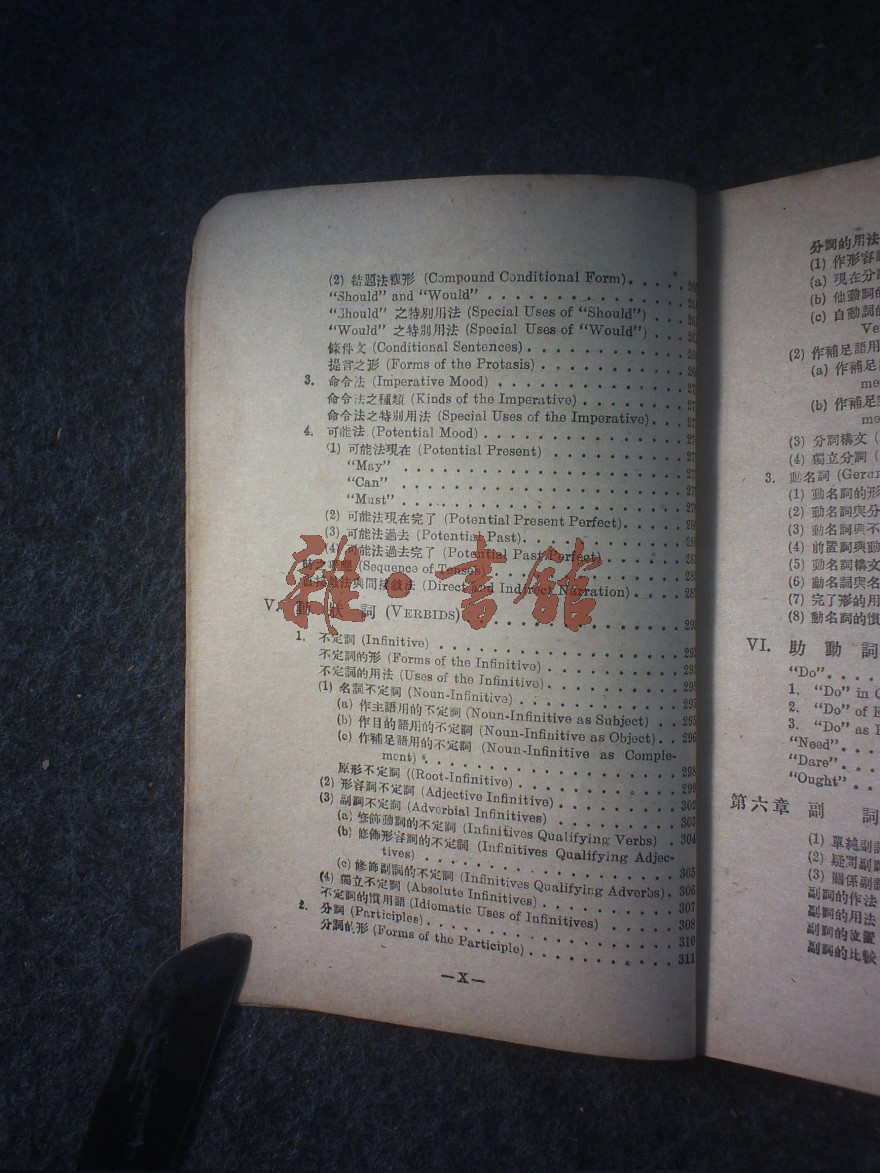 (2) 結題法複形 (Compound Conditional Form)
"Should" and "Would"
"Should" 之特別用法 (Special Uses of "Should")
"Would" 之特別用法 (Special Uses of "Would")
條件文 (Conditional Sentences)
提言之形 (Forms of the Protasis)
3. 命令法 (Imperative Mood)
命令法之種類 (Kinds of the Imperative)
命令法之特別用法 (Special Uses of the Imperative)
4. 可能法 (Potential Mood)
(1) 可能法現在 (Potential Present)
"May"
"Can"
"Must"
(2) 可能法現在完了 (Potential Present Perfect)
(3) 可能法過去 (Potential Past)
(4) 可能法過去完了 (Potential Past Perfect)
(Sequence of Tenses)
法與間接敘法 (Direct and Indirect Narration)
雜·書館
V. 動狀詞 (VERBIDS)
1. 不定詞 (Infinitive)
不定詞的形 (Forms of the Infinitive)
不定詞的用法 (Uses of the Infinitive)
(1) 名詞不定詞 (Noun-Infinitive)
(a) 作主語用的不定詞 (Noun-Infinitive as Subject) 295
(b) 作目的語用的不定詞 (Noun-Infinitive as Object) 296
(c) 作補足語用的不定詞 (Noun-Infinitive as Comple-
ment)
原形不定詞 ((Root-Infinitive) 298
(2) 形容詞不定詞 (Adjective Infinitive) 299
(3) 副詞不定詞 (Adverbial Infinitives) 302
(a) 修飾動詞的不定詞 (Infinitives Qualifying Verbs) 304
(b) 修飾形容詞的不定詞 (Infinitives Qualifying Adjec-
tives) 305
(c) 修飾副詞的不定詞 (Infinitives Qualifying Adverbs) 306
(4) 獨立不定詞 (Absolute Infinitives) 307
不定詞的慣用語 (Idiomatic Uses of Infinitives) 308
2. 分詞 (Participles) 310
分詞的形 (Forms of the Participle) 311
—X—
分詞的用法
(1) 作形容詞
(a) 現在分詞
(b) 他動詞的
(c) 自動詞的
Ve
(2) 作補足語用
(a) 作補足
me
(b) 作補足
me
(3) 分詞構文
(4) 獨立分詞
3. 動名詞 (Gerun
(1) 動名詞的形
(2) 動名詞與分
(3) 動名詞與不
(4) 前置詞與動
(5) 動名詞構文
(6) 動名詞與名
(7) 完了形的用
(8) 動名詞的慣
VI. 助動詞
"Do"
1. "Do" in
2. "Do" of
3. "Do" as
"Need"
"Dare"
"Ought"
第六章 副詞
(1) 單純副詞
(2) 疑問副詞
(3) 關係副詞
副詞的作法
副詞的用法
副詞的位置
副詞的比較